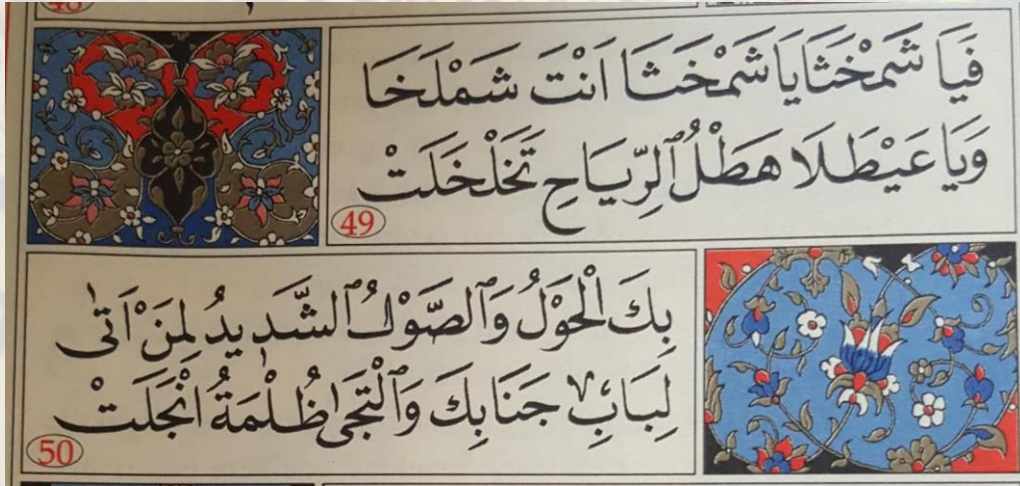 48
فَيَا شَمْخَثَا يَا شَمْخَثَا اَنْتَ شَمْلَخَا
وَيَا عَيْطَلَا هَطْلُ ٱلرِّيَاحِ تَخَلْخَلَتْ
49
بِكَ الْحَوْلُ وَٱلصَّوْلُ ٱلشَّدِيدُ لِمَنْ اَتٰى
لِبَابِ جَنَابِكَ وَٱلْتَجٰى ظُلْمَةُ انْجَلَتْ
50